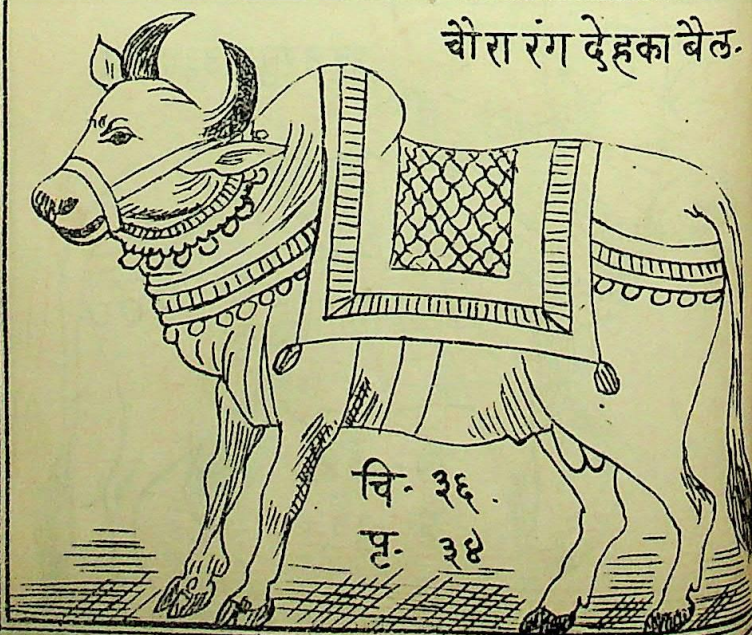 चौरा रंग देहका बैल.
चि. ३६.
पृ. ३४